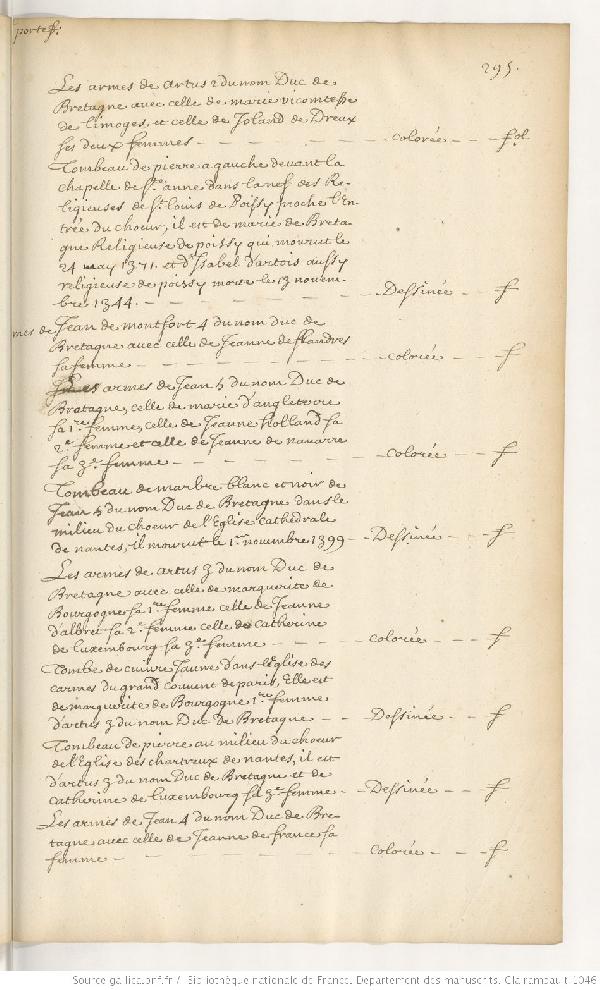 portef.
295.
Les armes de artus 2 du nom Duc de
Bretagne avec celle de marie vicomtesse
de limoges, et celle de Joland de Dreux
ses deux femmes - colorée - fol.
Tombeau de pierre a gauche devant la
chapelle de ste. anne dans la nef des Re-
ligieuses de st. louis de Poissy proche l'en-
trée du choeur, il est de marie de Breta-
gne Religieuse de poissy qui mourut le
24 may 1371. et de Isabel d'artois aussy
religieuse de poissy morte le 13 novem-
bre 1344. - Dessinée - f
mes de Jean de montfort 4 du nom duc de
Bretagne avec celle de Jeanne de flandres
sa femme - colorée - f
Les armes de Jean 5 du nom Duc de
Bretagne, celle de marie d'angleterre
sa 1re. femme, celle de Jeanne Holland sa
2e. femme et celle de Jeanne de navarre
sa 3e. femme - colorée - f
Tombeau de marbre blanc et noir de
Jean 5 du nom Duc de Bretagne dans le
milieu du choeur de l'Eglise cathedrale
de nantes, il mourut le 1er novembre 1399 - Dessinée - f
Les armes de artus 3 du nom Duc de
Bretagne avec celle de marguerite de
Bourgogne sa 1re femme celle de Jeanne
d'albret sa 2e. femme celle de Catherine
de luxembourg sa 3e. femme - colorée - f
Tombe de cuivre Jaune dans l'Eglise des
carmes du grand couvent de paris, Elle est
de marguerite de Bourgogne 1re. femme
d'artus 3 du nom Duc de Bretagne - Dessinée - f
Tombeau de pierre au milieu du choeur
de l'Eglise des chartreux de nantes, il est
d'artus 3 du nom Duc de Bretagne et de
catherine de luxembourg sa 3e. femme - Dessinée - f
Les armes de Jean 4 du nom Duc de Bre-
tagne avec celle de Jeanne de france sa
femme - colorée - f
Source gallica.bnf.fr / Bibliothèque nationale de France. Département des manuscrits. Clairambault 1046